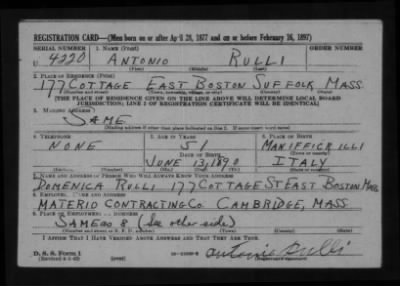 REGISTRATION CARD—(Men born on or after April 28, 1877 and on or before February 16, 1897)
SERIAL NUMBER 1. NAME (Print) ORDER NUMBER
U 4220 ANTONIO RULLI
(First) (Middle) (Last)
2. PLACE OF RESIDENCE (Print)
177 COTTAGE EAST BOSTON SUFFOLK MASS.
(Number and street) (Town, township, village, or city) (County) (State)
[THE PLACE OF RESIDENCE GIVEN ON THE LINE ABOVE WILL DETERMINE LOCAL BOARD
JURISDICTION; LINE 2 OF REGISTRATION CERTIFICATE WILL BE IDENTICAL]
3. MAILING ADDRESS
SAME
[Mailing address if other than place indicated on line 2. If same insert word same]
4. TELEPHONE 5. AGE IN YEARS 6. PLACE OF BIRTH
NONE 51
DATE OF BIRTH
JUNE 13, 1890 ITALY
7. NAME AND ADDRESS OF PERSON WHO WILL ALWAYS KNOW YOUR ADDRESS
DOMENICA RULLI 177 COTTAGE ST EAST BOSTON, MASS
8. EMPLOYER'S NAME AND ADDRESS
MATERIO CONTRACTING CO. CAMBRIDGE, MASS.
9. PLACE OF EMPLOYMENT OR BUSINESS
SAME AS 8 (See other side)
(Number and street or R. F. D. number) (Town) (County) (State)
I AFFIRM THAT I HAVE VERIFIED ABOVE ANSWERS AND THAT THEY ARE TRUE.
D. S. S. Form 1
Antonio Rulli